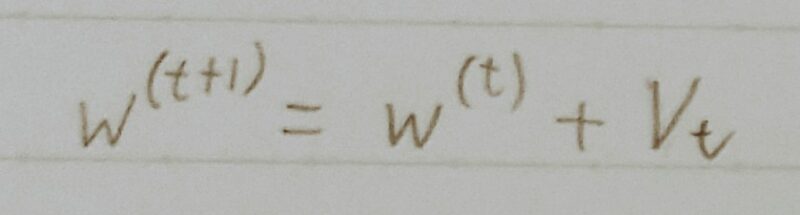 w^{(t+1)} = w^{(t)} + V_t